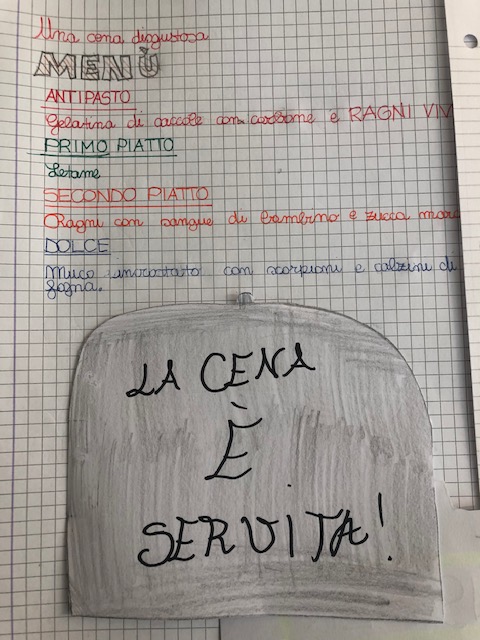 Una cena disgustosa
MENÙ
ANTIPASTO
Gelatina di caccole con carbone e RAGNI VIV
PRIMO PIATTO
Letame
SECONDO PIATTO
Ragni con sangue di bambino e zucca mar
DOLCE
Muco incrostato con scorpioni e calzini di
fogna.
LA CENA
È
SERVITA!